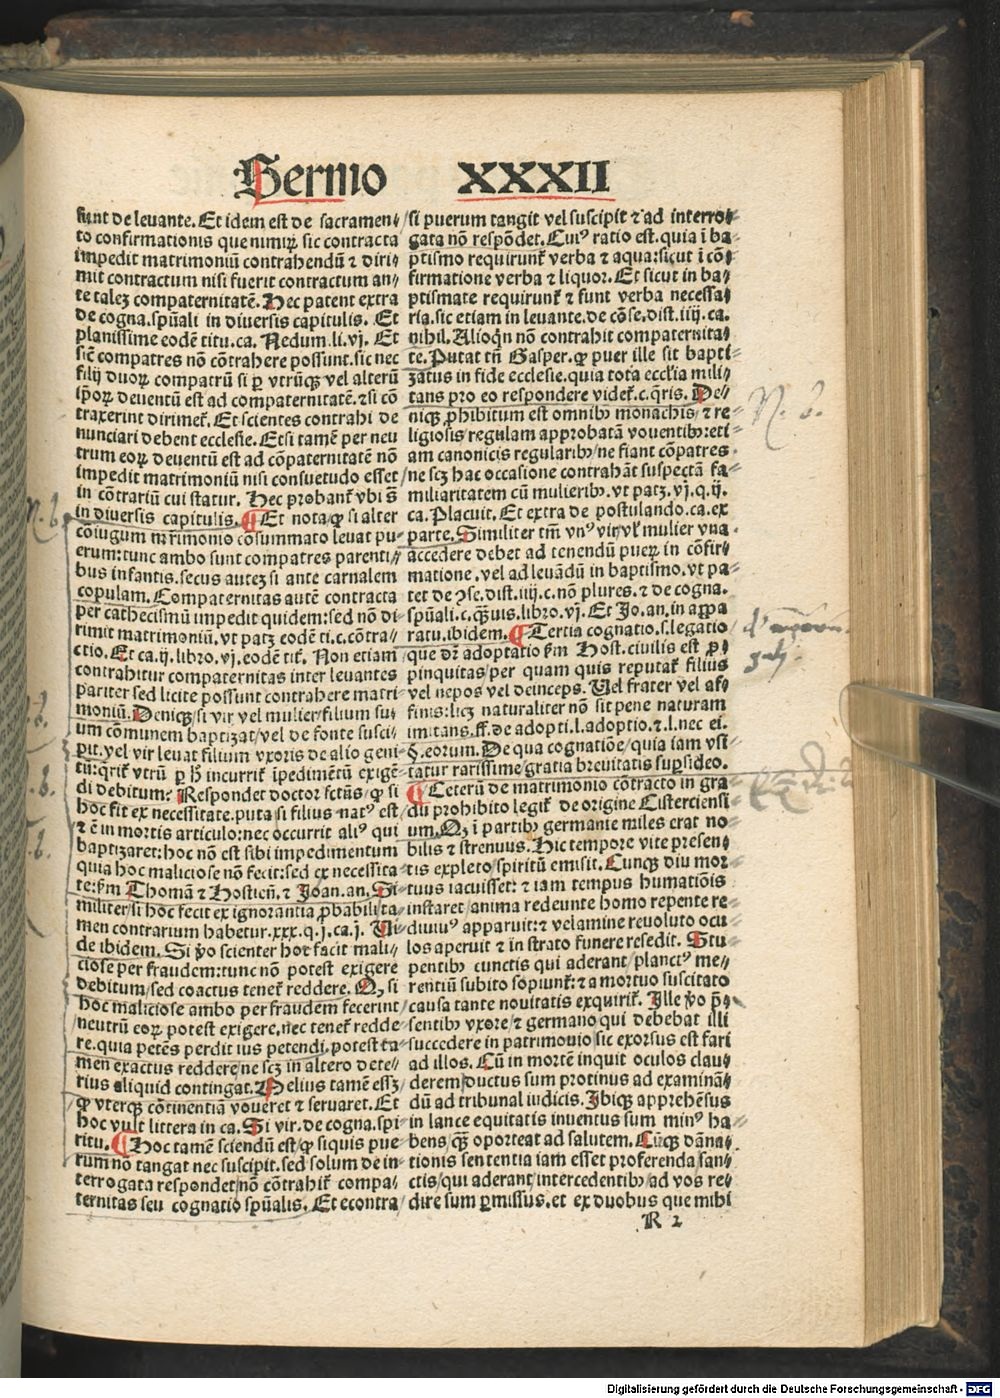 Sermo XXXII
sunt de leuante. Et idem est de sacramen⸗
to confirmationis que nimiꝝ sic contracta
impedit matrimoniū contrahendū ⁊ diri⸗
mit contractum nisi fuerit contractum an⸗
te taleꝫ compaternitatē. Hec patent extra
de cogna. spūali in diuersis capitulis. Et
planissime eodē titu. ca. Nedum. li. vj. Et
sicut compatres nō cōtrahere possunt. sic nec
filij duoꝝ compatrū si ꝑ vtrūqꝫ vel alterū
ipoꝝ deuentū est ad compaternitatē. ⁊ si cō
traxerint dirimet̄. Et scientes contrahi de
nunciari debent ecclesie. Etsi tamē per neu
trum eoꝝ deuentū est ad cōpaternitatē nō
impedit matrimoniū nisi consuetudo esset
in cōtrariū cui statur. Hec probant̄ vbi s̄
in diuersis capitulis. ¶ Et nota ꝙ si alter
coiugum matrimonio cōsummato leuat pu⸗
erum: tunc ambo sunt compatres parenti⸗
bus infantis. secus auteꝫ si ante carnalem
copulam. Compaternitas autē contracta
per cathecismū impedit quidem: sed nō di⸗
rimit matrimoniū. vt patꝫ eodē ti. c. cōtra⸗
ctio. Et ca. ij. libro. vj. eodē tit̄. Non etiam
contrahitur compaternitas inter leuantes
pariter sed licite possunt contrahere matri⸗
moniū. Deniqꝫ/si vir vel mulier/filium su⸗
um cōmunem baptizat/vel de fonte susci⸗
pit. vel vir leuat filium vxoris de alio geni⸗
tū: qrit̄ vtrū ꝑ ħ incurrit̄ ipedimētū exigē⸗
di debitum? Respondet doctor sctūs/ꝙ si
hoc fit ex necessitate. puta si filius natꝰ est
⁊ ē in mortis articulo: nec occurrit aliꝰ qui
baptizaret: hoc nō est sibi impedimentum
quia hoc maliciose nō fecit: sed ex necessita⸗
te: f̄m Thomā ⁊ Hosticn̄. ⁊ Joan. an. Si⸗
militer/si hoc fecit ex ignorantia ꝓbabili/ta⸗
men contrarium habetur. xxx. q. j. ca. j. Ui⸗
de ibidem. Si v̄o scienter hoc facit mali⸗
ciose per fraudem: tunc nō potest exigere
debitum/sed coactus tenet̄ reddere. Qꝫ si
hoc maliciose ambo per fraudem fecerint
neutrū eoꝝ potest exigere. nec tenet̄ redde⸗
re. quia petēs perdit ius petendi. potest ta⸗
men exactus reddere/ne scꝫ in altero dete⸗
rius aliquid contingat. Melius tamē essꝫ
ꝙ vterqꝫ cōtinentiā voueret ⁊ seruaret. Et
hoc vult littera in ca. Si vir. de cogna. spi⸗
ritu. ¶ Hoc tamē sciendū est/ꝙ siquis pue⸗
rum nō tangat nec suscipit. sed solum de in⸗
terrogata respondet/nō cōtrahit̄ compa⸗
ternitas seu cognatio spūalis. Et econtra/
si puerum tangit vel suscipit ⁊ ad interro⸗
gata nō respōdet. Cuiꝰ ratio est. quia ī ba⸗
ptismo requirunt̄ verba ⁊ aqua: sicut ī cō⸗
firmatione verba ⁊ liquor. Et sicut in ba⸗
ptismate requirunt̄ ⁊ sunt verba necessa⸗
ria. sic etiam in leuante. de cōse. dist. iiij. ca.
nihil. Alioqn̄ nō contrahit compaternita⸗
te. Putat tn̄ Gasper. ꝙ puer ille sit bapti⸗
zatus in fide ecclesie. quia tota ecclīa mili⸗
tans pro eo respondere videt̄. c. qris. De⸗
niqꝫ ꝓhibitum est omnibꝫ monachis/⁊ re⸗
ligiosis/regulam approbatā vouentibꝫ: eti⸗
am canonicis regularibꝫ/ne fiant cōpatres
ne scꝫ hac occasione contrahāt suspectā fa⸗
miliaritatem cū mulieribꝫ. vt patꝫ. vj. q. ij.
ca. Placuit. Et extra de postulando. ca. ex
parte. Similiter tm̄ vnꝰ vir/vl̄ mulier vna
accedere debet ad tenendū pueꝝ in cōfir⸗
matione. vel ad leuādū in baptismo. vt pa⸗
tet de ↄse. dist. iiij. c. nō plures. ⁊ de cogna.
spūali. c. qꝫuis. libro. vj. Et Jo. an. in appa
ratu. ibidem. ¶ Tertia cognatio. s. legatio
que dr̄ adoptatio f̄m Host. ciuilis est ꝓ⸗
pinquitas/per quam quis reputat̄ filius
vel nepos vel deinceps. Uel frater vel af⸗
finis: licꝫ naturaliter nō sit pene naturam
imitans. ff. de adopti. l. adoptio. ⁊. l. nec ei.
§. eorum. De qua cognatiōe/quia iam vsi⸗
tatur rarissime/gratia breuitatis suꝑsideo.
¶ Ceterū de matrimonio cōtracto in gra
du prohibito legit̄ de origine Cisterciensi
um. Qꝫ ī partibꝫ germanie miles erat no⸗
bilis ⁊ strenuus. Hic tempore vite presen⸗
tis expleto/spiritū emisit. Cunqꝫ diu mor⸗
tuus iacuisset: ⁊ iam tempus humatiōis
instaret/anima redeunte homo repente re⸗
diuiuꝰ apparuit: ⁊ velamine reuoluto ocu⸗
los aperuit ⁊ in strato funere resedit. Stu⸗
pentibꝫ cunctis qui aderant/planctꝰ me⸗
rentiū subito sopiunt̄: ⁊ a mortuo suscitato
causa tante nouitatis exquirit̄. Ille v̄o p̄⸗
sentibꝫ vxore/⁊ germano qui debebat illi
succedere in patrimonio/sic exorsus est fari
ad illos. Cū in mortē inquit oculos clau⸗
derem/ductus sum protinus ad examinā⸗
dū ad tribunal iudicis. Ibiqꝫ apprehēsus
in lance equitatis inuentus sum minꝰ ha⸗
bens/qꝫ oporteat ad salutem. Cūqꝫ dāna⸗
tionis sententia iam esset proferenda/san⸗
ctis/qui aderant/intercedentibꝫ/ad vos re⸗
dire sum ꝑmissus. et ex duobus que mihi
R 2
N. b.
n. b.
Digitalisierung gefördert durch die Deutsche Forschungsgemeinschaft - DFG